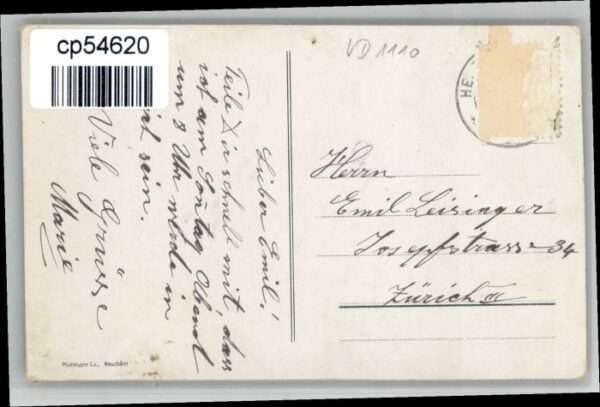 cp54620
VD 1110
HE
Lieber Emil!
Teile Dir schnell mit, dass
ich am Sontag Abend
um 8 Uhr werde in
sein.
Viele Grüsse
Marie
Herrn
Emil Leisinger
Josefstrasse 34
Zürich III
Phototypie Co., Neuchâtel